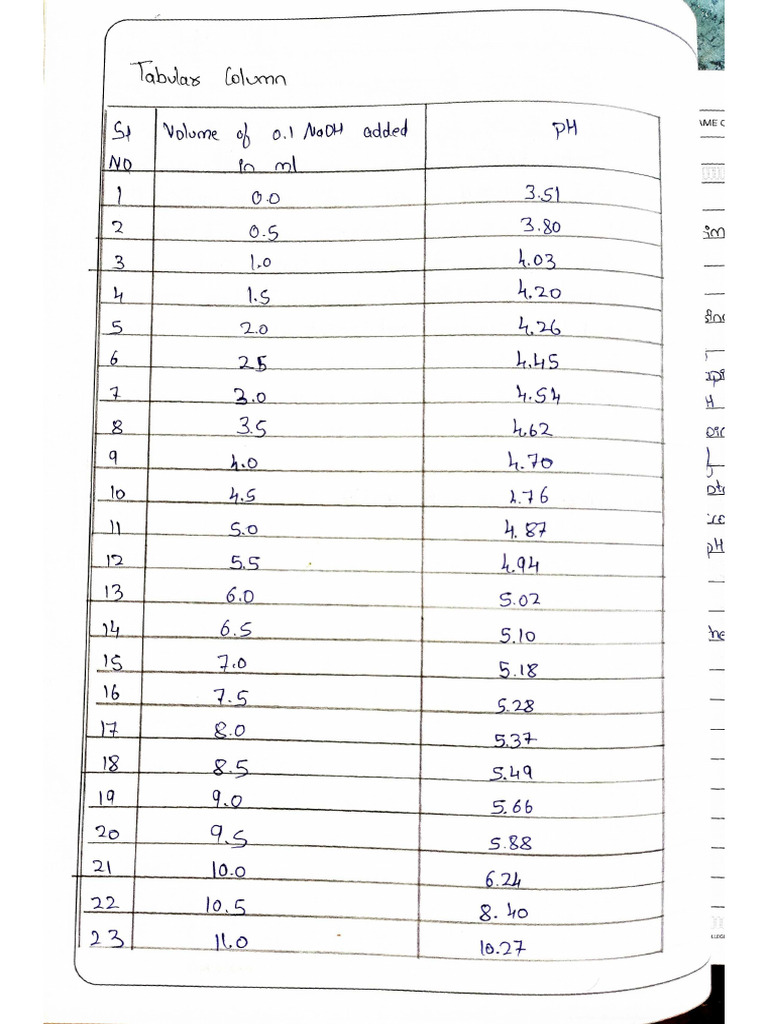 Tabular Column
Sl Volume of 0.1 NaOH added pH
NO in ml
1 0.0 3.51
2 0.5 3.80
3 1.0 4.03
4 1.5 4.20
5 2.0 4.26
6 2.5 4.45
7 3.0 4.54
8 3.5 4.62
9 4.0 4.70
10 4.5 4.76
11 5.0 4.87
12 5.5 4.94
13 6.0 5.02
14 6.5 5.10
15 7.0 5.18
16 7.5 5.28
17 8.0 5.37
18 8.5 5.49
19 9.0 5.66
20 9.5 5.88
21 10.0 6.24
22 10.5 8.40
23 11.0 10.27
pH